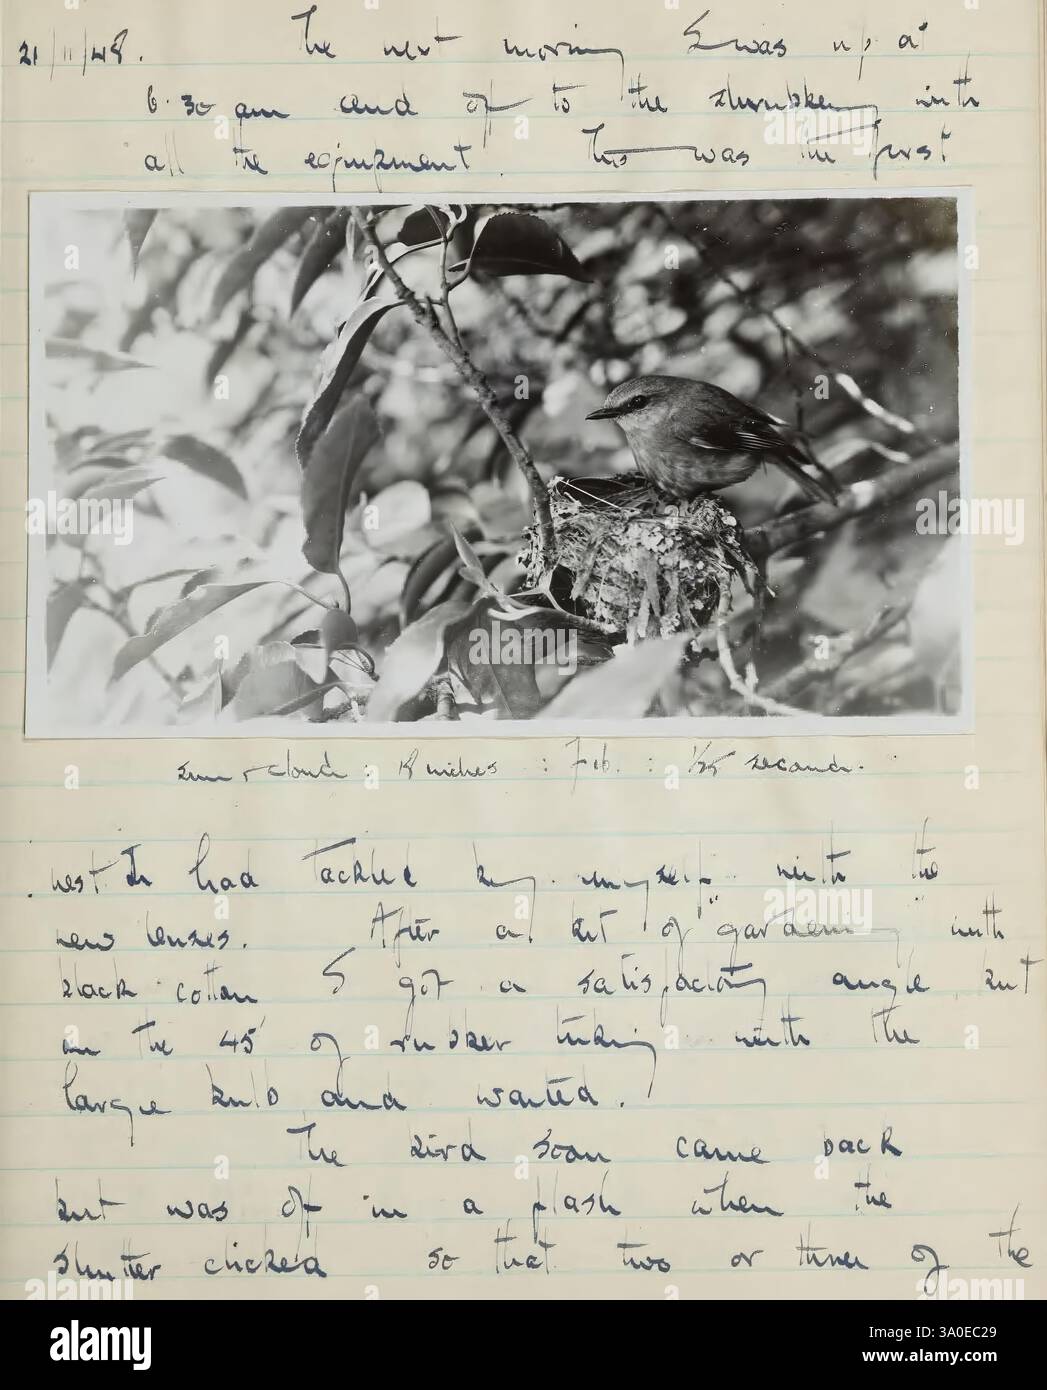 21/11/48. The next morning I was up at
6.30 am and off to the shrubbery with
all the equipment. This was the first
sun + cloud : 18 inches : F16. : 1/25 second.
nest I had tackled by myself with the
new lenses. After a bit of "gardening" with
black cotton I got a satisfactory angle but
on the 45' of rubber tubing with the
large bulb and waited.
The bird soon came back
but was off in a flash when the
shutter clicked so that two or three of the
alamy
Image ID: 3A0EC29
www.alamy.com